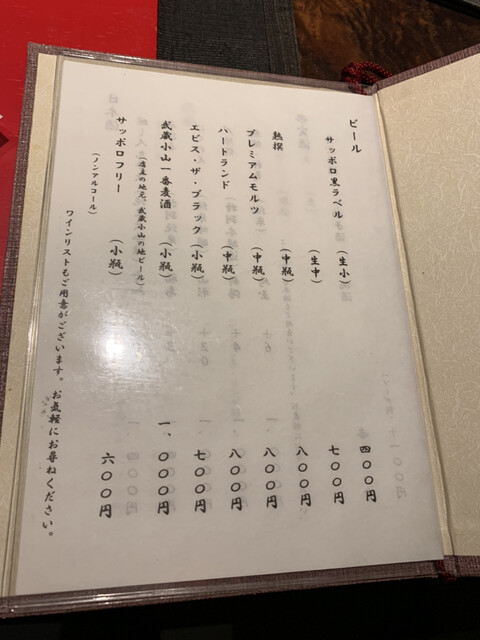 ビール
サッポロ黒ラベル（生小）四〇〇円
（生中）七〇〇円
熱撰（中瓶）八〇〇円
プレミアムモルツ（中瓶）八〇〇円
ハートランド（中瓶）八〇〇円
エビス・ザ・ブラック（小瓶）七〇〇円
武蔵小山一番麦酒（小瓶）一、〇〇〇円
（店主の地元、武蔵小山の地ビール）
サッポロフリー（小瓶）六〇〇円
（ノンアルコール）
ワインリストもご用意がございます。お気軽にお尋ねください。